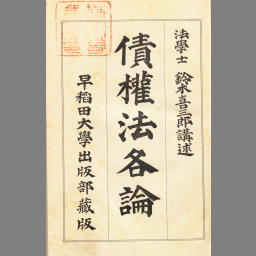 法學士 鈴木喜三郎講述
債權法各論
早稻田大學出版部藏版